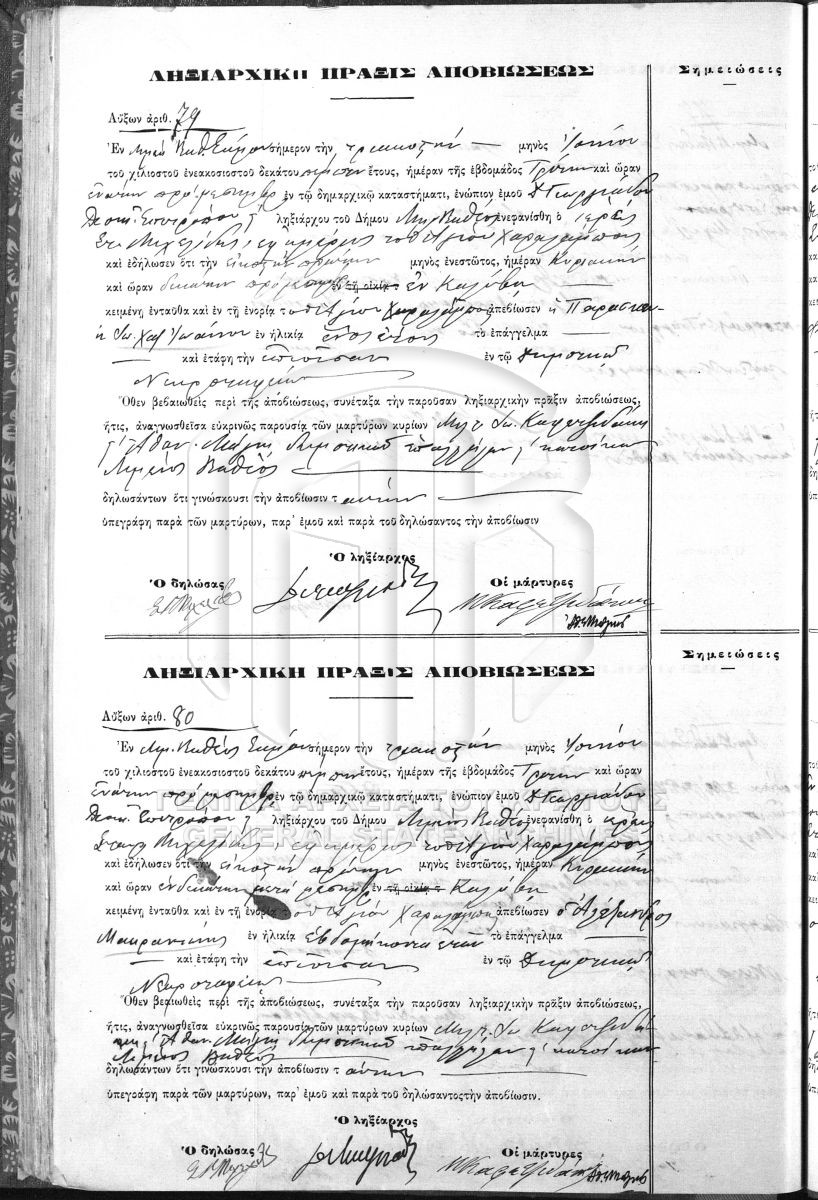 ΛΗΞΙΑΡΧΙΚΗ ΠΡΑΞΙΣ ΑΠΟΒΙΩΣΕΩΣ
Σημειώσεις
Αὔξων ἀριθ. 79
Ἐν Λιμένι Βαθέος Σάμου σήμερον τὴν τριακοστὴν μηνὸς Ἰουνίου
τοῦ χιλιοστοῦ ἐνεακοσιοστοῦ δεκάτου πέμπτου ἔτους, ἡμέραν τῆς ἑβδομάδος Τρίτην καὶ ὥραν
ἐνάτην πρὸ μεσημβρ ἐν τῷ δημαρχικῷ καταστήματι, ἐνώπιον ἐμοῦ Γεωργιάδου
ληξιάρχου τοῦ Δήμου Λιμ. Βαθέος ἐνεφανίσθη ὁ ἱερεὺς
Μιχελιδης, ἐφημέριος τοῦ Ἁγίου Χαραλάμπους
καὶ ἐδήλωσεν ὅτι τὴν εἰκοστὴν πρώτην μηνὸς ἐνεστῶτος, ἡμέραν Κυριακὴν
καὶ ὥραν δεκάτην ἐν τῇ οἰκίᾳ τ ἐν Καλύβῃ
κειμένῃ ἐνταῦθα καὶ ἐν τῇ ἐνορίᾳ τοῦ Ἁγίου Χαραλάμπους ἀπεβίωσεν ἡ Παρασκευ-
ὴ Ἰω. Χατ Ἰωάννου ἐν ἡλικίᾳ ἑνὸς ἔτους τὸ ἐπάγγελμα
καὶ ἐτάφη τὴν ἐπιοῦσαν ἐν τῷ Δημοτικῷ
Νεκροταφείῳ
Ὅθεν βεβαιωθεὶς περὶ τῆς ἀποβιώσεως, συνέταξα τὴν παροῦσαν ληξιαρχικὴν πρᾶξιν ἀποβιώσεως,
ἥτις, ἀναγνωσθεῖσα εὐκρινῶς παρουσίᾳ τῶν μαρτύρων κυρίων Μιλτ. Ἰω.
Ἀθαν. Μάγνη δημοτικοῦ ὑπαλλήλου κατοίκων
Λιμένος Βαθέος
δηλωσάντων ὅτι γινώσκουσι τὴν ἀποβίωσιν ταύτην
ὑπεγράφη παρὰ τῶν μαρτύρων, παρ' ἐμοῦ καὶ παρὰ τοῦ δηλώσαντος τὴν ἀποβίωσιν
Ὁ ληξίαρχος
Ὁ δηλώσας
Οἱ μάρτυρες
ΛΗΞΙΑΡΧΙΚΗ ΠΡΑΞΙΣ ΑΠΟΒΙΩΣΕΩΣ
Σημειώσεις
Αὔξων ἀριθ. 80
Ἐν Λιμ. Βαθέος Σάμου σήμερον τὴν τριακοστὴν μηνὸς Ἰουνίου
τοῦ χιλιοστοῦ ἐνεακοσιοστοῦ δεκάτου πέμπτου ἔτους, ἡμέραν τῆς ἑβδομάδος Τρίτην καὶ ὥραν
ἐνάτην πρὸ μεσημβρ ἐν τῷ δημαρχικῷ καταστήματι, ἐνώπιον ἐμοῦ Γεωργιάδου
ληξιάρχου τοῦ Δήμου Λιμένος Βαθέος ἐνεφανίσθη ὁ ἱερεὺς
Μιχελιδης ἐφημέριος τοῦ Ἁγίου Χαραλάμπους
καὶ ἐδήλωσεν ὅτι τὴν εἰκοστὴν πρώτην μηνὸς ἐνεστῶτος, ἡμέραν Κυριακὴν
καὶ ὥραν ἑνδεκάτην μετὰ μεσημβρ ἐν τῇ οἰκίᾳ τ Καλύβῃ
κειμένῃ ἐνταῦθα καὶ ἐν τῇ ἐνορίᾳ τοῦ Ἁγίου Χαραλάμπους ἀπεβίωσεν ὁ Ἀλέξανδρος
ἐν ἡλικίᾳ ἑβδομήκοντα ἐτῶν τὸ ἐπάγγελμα
καὶ ἐτάφη τὴν ἐπιοῦσαν ἐν τῷ Δημοτικῷ
Νεκροταφείῳ
Ὅθεν βεβαιωθεὶς περὶ τῆς ἀποβιώσεως, συνέταξα τὴν παροῦσαν ληξιαρχικὴν πρᾶξιν ἀποβιώσεως,
ἥτις, ἀναγνωσθεῖσα εὐκρινῶς παρουσίᾳ τῶν μαρτύρων κυρίων Μιλτ. Ἰω.
Ἀθαν. Μάγνη δημοτικοῦ ὑπαλλήλου κατοίκων
Λιμένος Βαθέος
δηλωσάντων ὅτι γινώσκουσι τὴν ἀποβίωσιν ταύτην
ὑπεγράφη παρὰ τῶν μαρτύρων, παρ' ἐμοῦ καὶ παρὰ τοῦ δηλώσαντος τὴν ἀποβίωσιν.
Ὁ ληξίαρχος
Ὁ δηλώσας
Οἱ μάρτυρες
ΓΕΝΙΚΑ ΑΡΧΕΙΑ ΤΟΥ ΚΡΑΤΟΥΣ
GENERAL STATE ARCHIVES